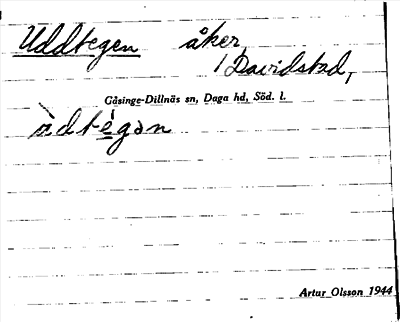 Uddtegen åker
/ Davidstad,
Gåsinge-Dillnäs sn, Daga hd, Söd. l.
ùdtégən
Artur Olsson 1944